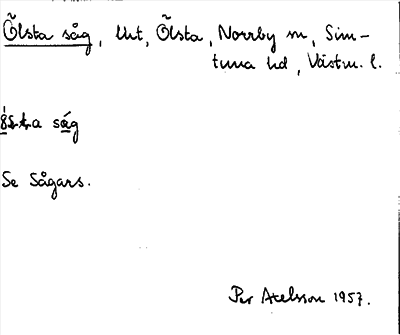 Õlsta såg, Uut, Õlsta, Norrby sn, Sim-
tuna hd, Västm. l.
a såg
Se Sågars.
Per Axelsson 1957.